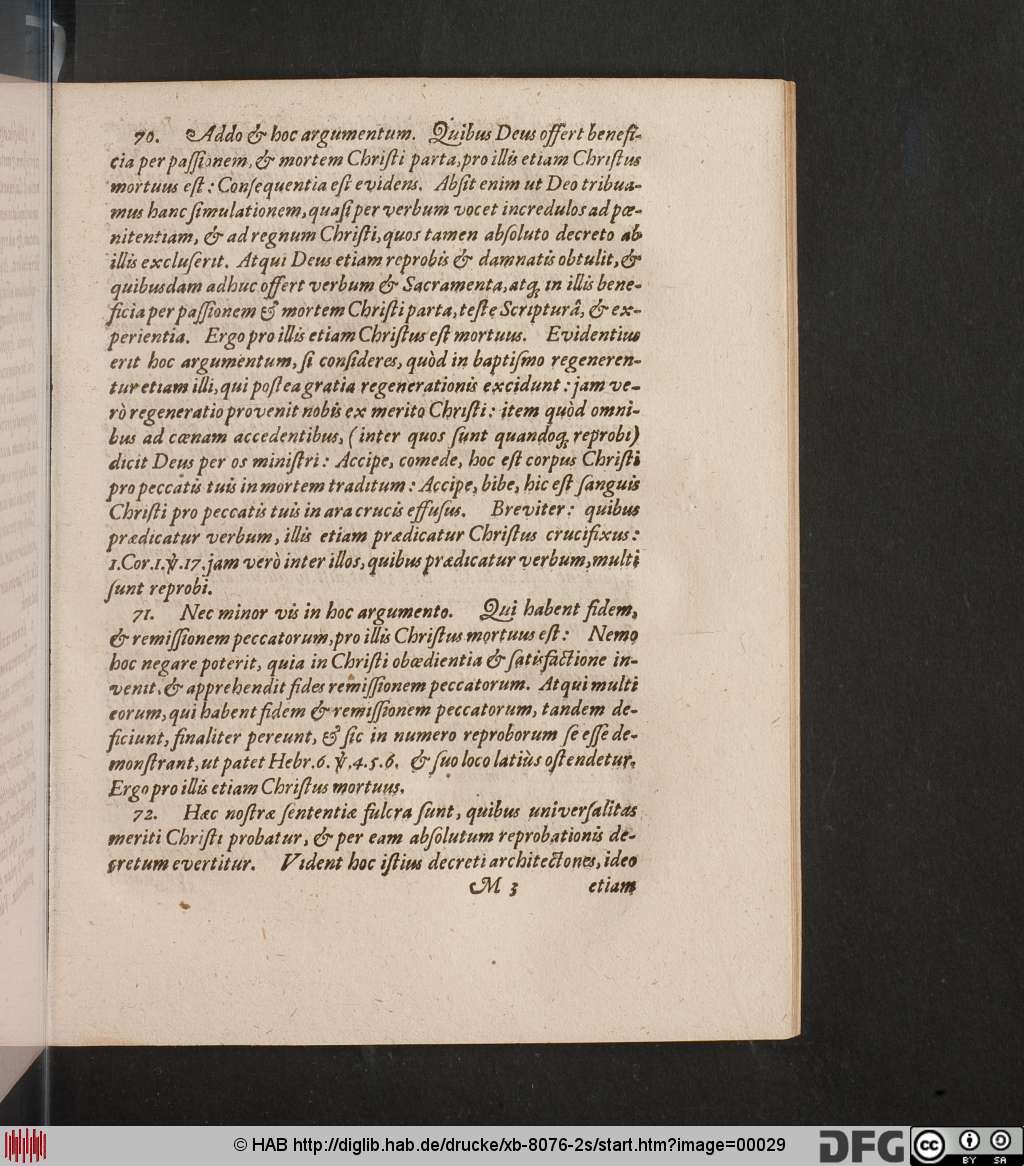 70. Addo & hoc argumentum. Quibus Deus offert benefi-
cia per passionem, & mortem Christi parta, pro illis etiam Christus
mortuus est: Consequentia est evidens. Absit enim ut Deo tribua-
mus hanc simulationem, quasi per verbum vocet incredulos ad pœ-
nitentiam, & ad regnum Christi, quos tamen absoluto decreto ab
illis excluserit. Atqui Deus etiam reprobis & damnatis obtulit, &
quibusdam adhuc offert verbum & Sacramenta, atq; in illis bene-
ficia per passionem & mortem Christi parta, teste Scripturâ, & ex-
perientia. Ergo pro illis etiam Christus est mortuus. Evidentius
erit hoc argumentum, si consideres, quòd in baptismo regeneren-
tur etiam illi, qui postea gratia regenerationis excidunt: jam ve-
rò regeneratio provenit nobis ex merito Christi: item quòd omni-
bus ad cœnam accedentibus, (inter quos sunt quandoq; reprobi)
dicit Deus per os ministri: Accipe, comede, hoc est corpus Christi
pro peccatis tuis in mortem traditum: Accipe, bibe, hic est sanguis
Christi pro peccatis tuis in ara crucis effusus. Breviter: quibus
prædicatur verbum, illis etiam prædicatur Christus crucifixus:
1. Cor. 1. ℣. 17. jam verò inter illos, quibus prædicatur verbum, multi
sunt reprobi.
71. Nec minor vis in hoc argumento. Qui habent fidem,
& remissionem peccatorum, pro illis Christus mortuus est: Nemo
hoc negare poterit, quia in Christi obœdientia & satisfactione in-
venit, & apprehendit fides remissionem peccatorum. Atqui multi
eorum, qui habent fidem & remissionem peccatorum, tandem de-
ficiunt, finaliter pereunt, & sic in numero reproborum se esse de-
monstrant, ut patet Hebr. 6. ℣. 4. 5. 6. & suo loco latiùs ostendetur.
Ergo pro illis etiam Christus mortuus.
72. Hæc nostræ sententiæ fulcra sunt, quibus universalitas
meriti Christi probatur, & per eam absolutum reprobationis de-
cretum evertitur. Vident hoc istius decreti architectones, ideo
M 3 etiam
© HAB http://diglib.hab.de/drucke/xb-8076-2s/start.htm?image=00029
DFG
cc BY SA